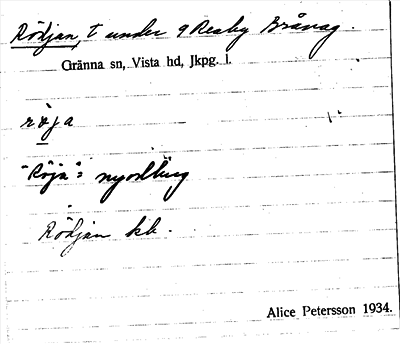 Rödjan, t under 9 Reaby Bråvag.
Gränna sn, Vista hd, Jkpg. l.
röja
"Röja" = nyodling
Rödjan kb.
Alice Petersson 1934.